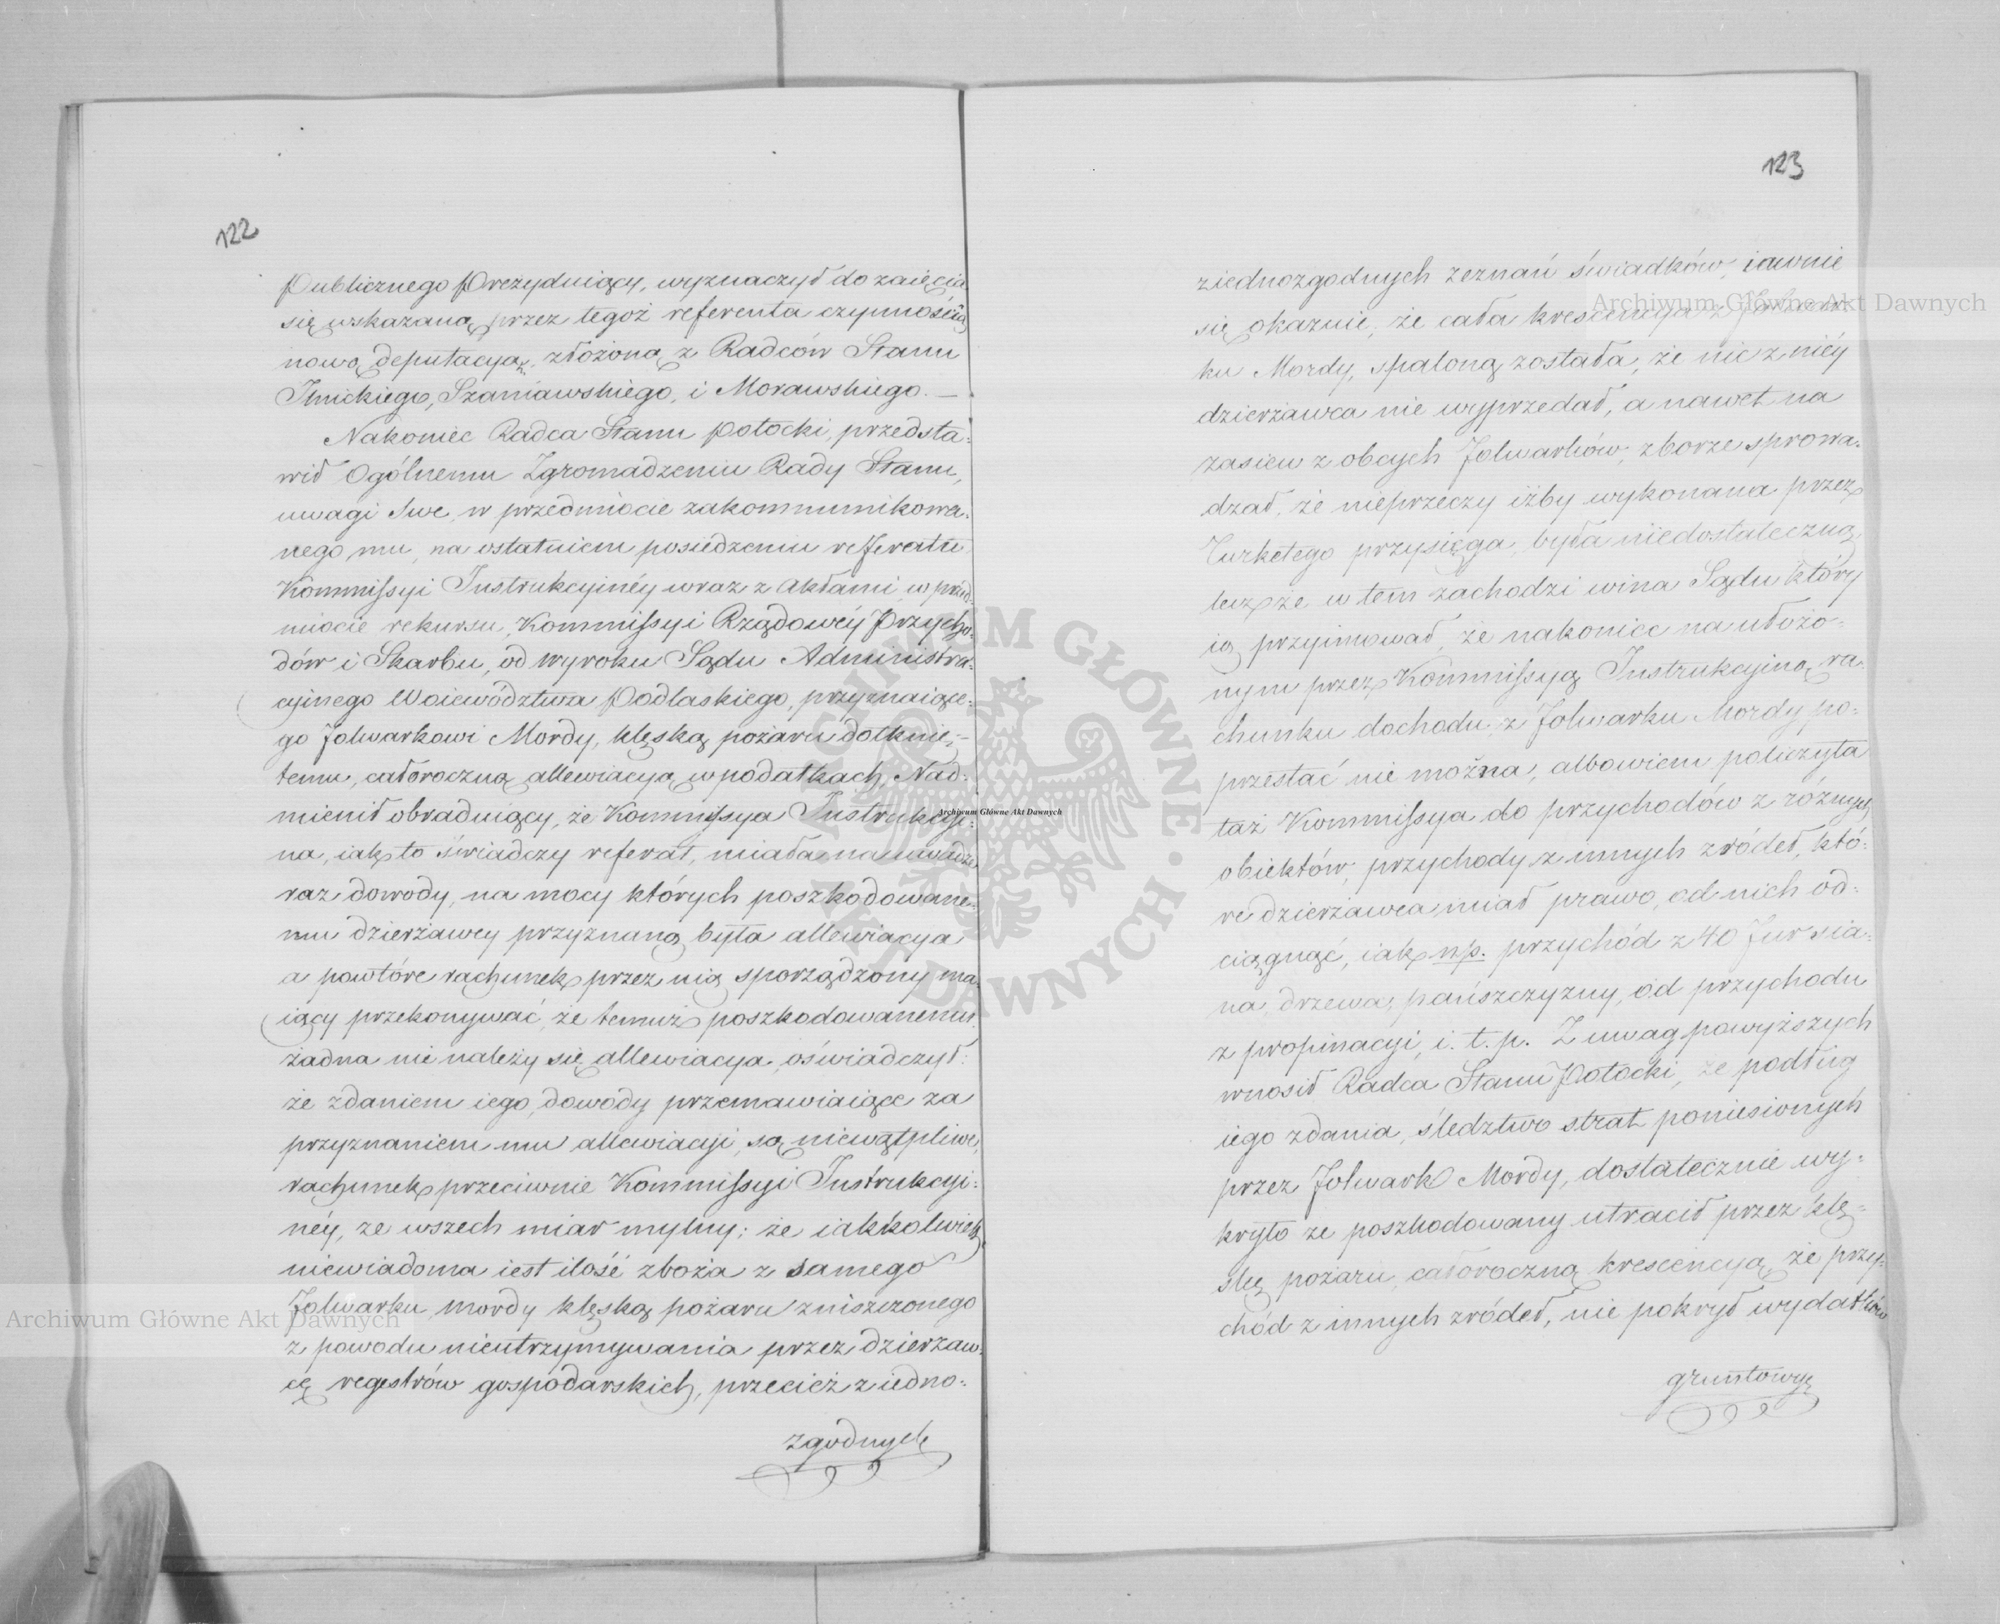 122
Publicznego Prezyduiący, wyznaczył do zaięcia
się wskazaną przez tegoż referenta czynnością
nową deputacyą, złożoną z Radców Stanu
Ilnickiego, Szaniawskiego, i Morawskiego. —
Nakoniec Radca Stanu Potocki, przedsta-
wił Ogólnemu Zgromadzeniu Rady Stanu,
uwagi swe, w przedmiocie zakommunikowa-
nego mu, na ostatniem posiedzeniu referatu
Kommissyi Instrukcyinéy wraz z Aktami, w przed-
miocie rekursu, Kommissyi Rządowéy Przycho-
dów i Skarbu, od wyroku Sądu Administra-
cyinego Woiewództwa Podlaskiego, przyznaiące-
go folwarkowi Mordy, klęską pożaru dotknię-
temu, całoroczną allewiacyą w podatkach. Nad-
mienił obraduiący, że Kommissya Instrukcyi-
na, iak to świadczy referat, miała na uwadze,
raz dowody, na mocy których poszkodowane-
mu dzierżawcy przyznaną była allewiacya
a powtóre rachunek przez nią sporządzony ma-
iący przekonywać, że temuż poszkodowanemu
żadna nie należy się allewiacya, oświadczył:
że zdaniem iego, dowody przemawiaiące za
przyznaniem mu allewiacyi, są niewątpliwe,
rachunek przeciwnie Kommissyi Instrukcyi-
néy, ze wszech miar mylny; że iakkolwiek
niewiadoma iest ilość zboża z samego
folwarku Mordy klęską pożaru zniszczonego
z powodu nieutrzymywania przez dzierżaw-
cę regestrów gospodarskich, przecież z iedno-
zgodnych
123
ziednozgodnych zeznań świadków, iawnie
się okazuie, że cała krescencya z folwar-
ku Mordy, spaloną została, że nic z niéy
dzierżawca nie wyprzedał, a nawet na
zasiew z obcych folwarków, zborze sprowa-
dzał, że nieprzeczy iżby wykonana przez
Turketego przysięga, była niedostateczną
lecz że w tem zachodzi wina Sądu który
ią przyimował, że nakoniec na ułożo-
nym przez Kommissyą Instrukcyiną ra-
chunku dochodu z folwarku Mordy po-
przestać nie można, albowiem policzyła
taż Kommissya do przychodów z różnych
obiektów, przychody z innych zródeł, któ-
re dzierżawca miał prawo, od nich od-
ciągnąć, iak np. przychód z 40 fur sia-
na, drzewa, pańszczyzny, od przychodu
z propinacyi, i. t. p. Z uwag powyższych
wnosił Radca Stanu Potocki, że podług
iego zdania, śledztwo strat poniesionych
przez folwark Mordy, dostatecznie wy-
kryło że poszkodowany utracił przez klę-
skę pożaru, całoroczną krescencyą, że przy-
chód z innych zródeł, nie pokrył wydatków
gruntowych
Archiwum Główne Akt Dawnych
Archiwum Główne Akt Dawnych
Archiwum Główne Akt Dawnych
ARCHIWUM GŁÓWNE AKT DAWNYCH